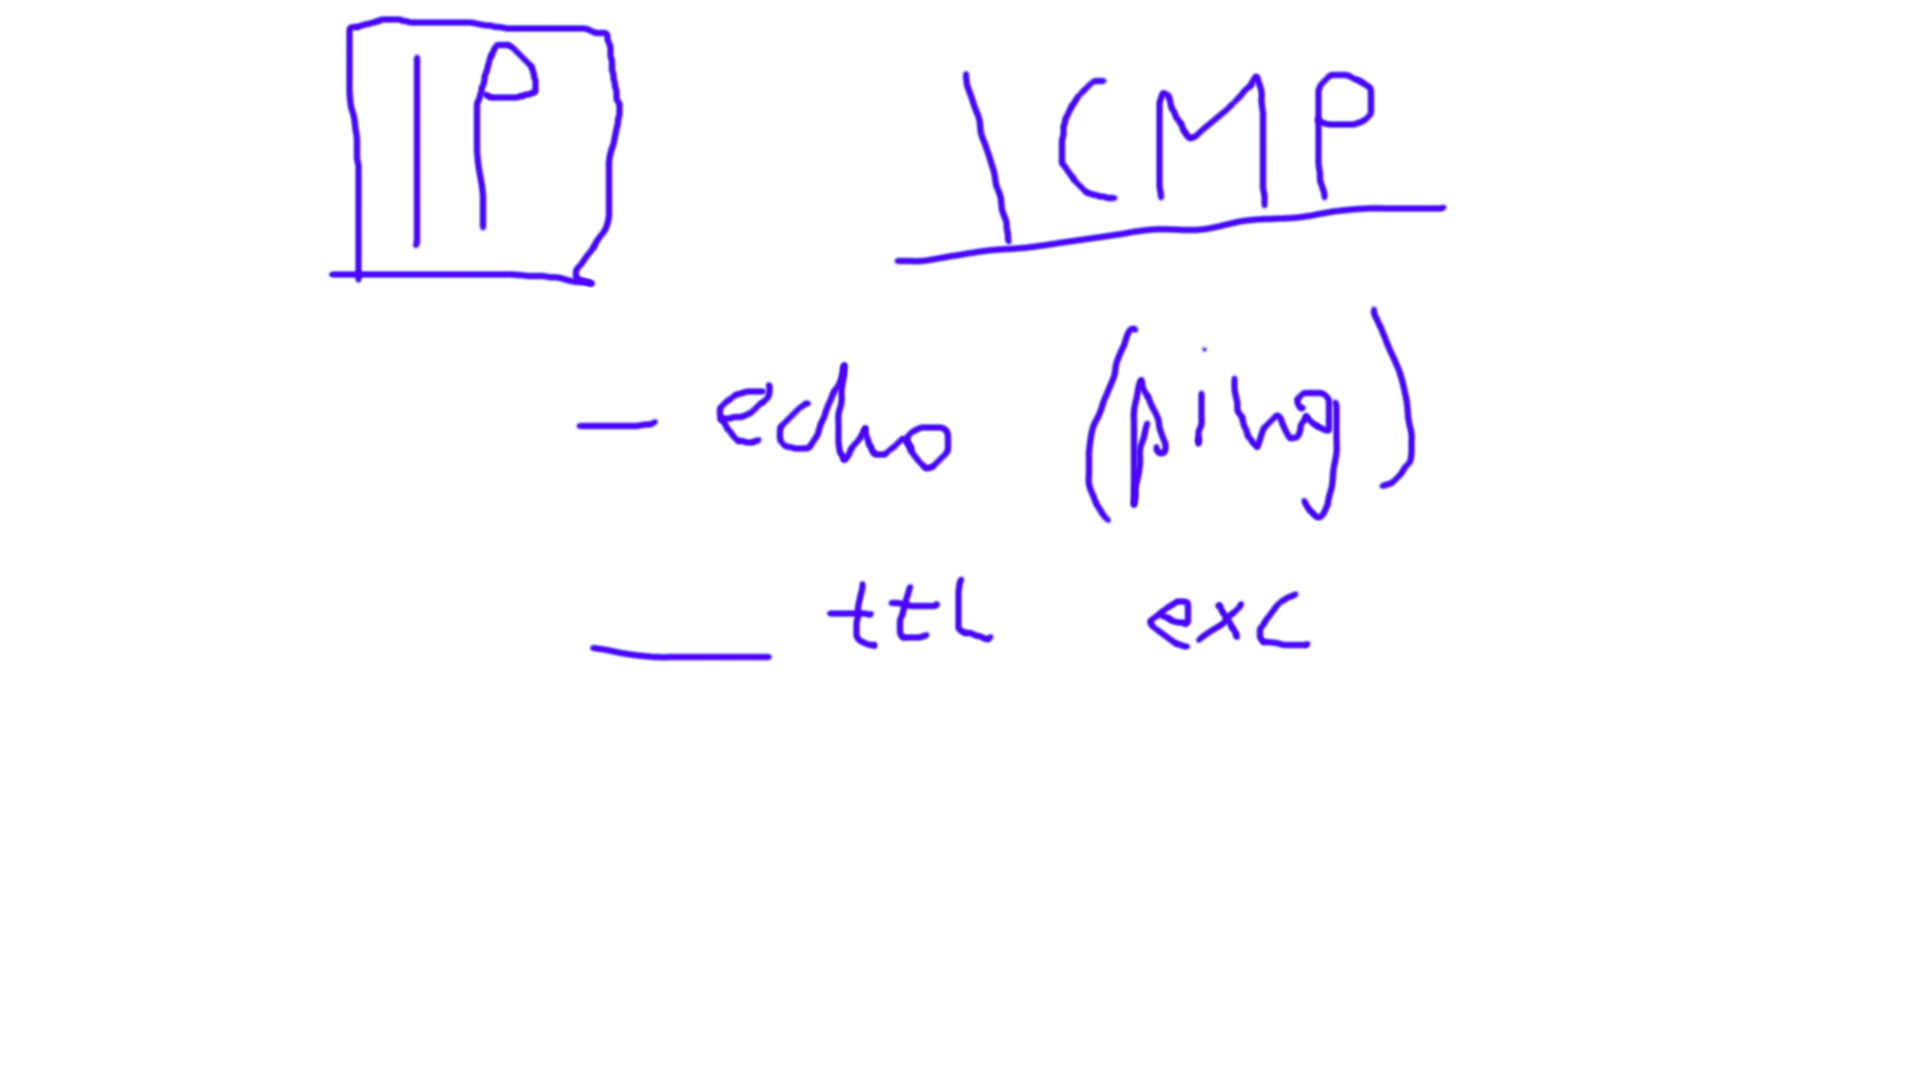 IP
ICMP
- echo (ping)
- ttl exc